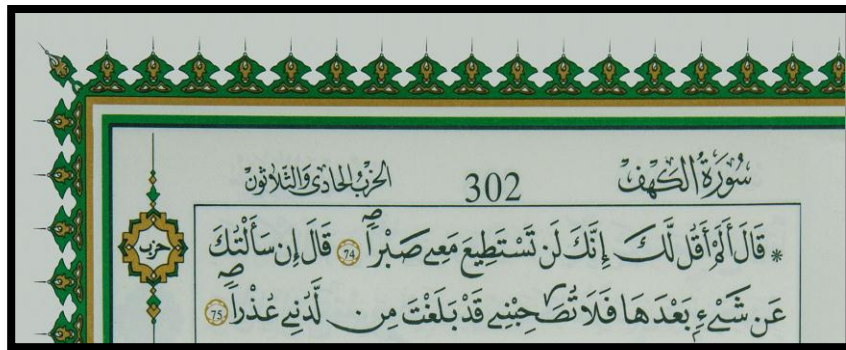 سُورَةُ الكَهْفِ 302 الحِزْبُ الحَادِي وَالثَّلَاثُونَ
* قَالَ أَلَمْ أَقُل لَّكَ إِنَّكَ لَن تَسْتَطِيعَ مَعِے صَبْراٗۖ 74 قَالَ إِن سَأَلْتُكَ
حزب
عَن شَےْءِۢ بَعْدَهَا فَلَا تُصَٰحِبْنِے قَدْ بَلَغْتَ مِن لَّدُنِے عُذْراٗۖ 75